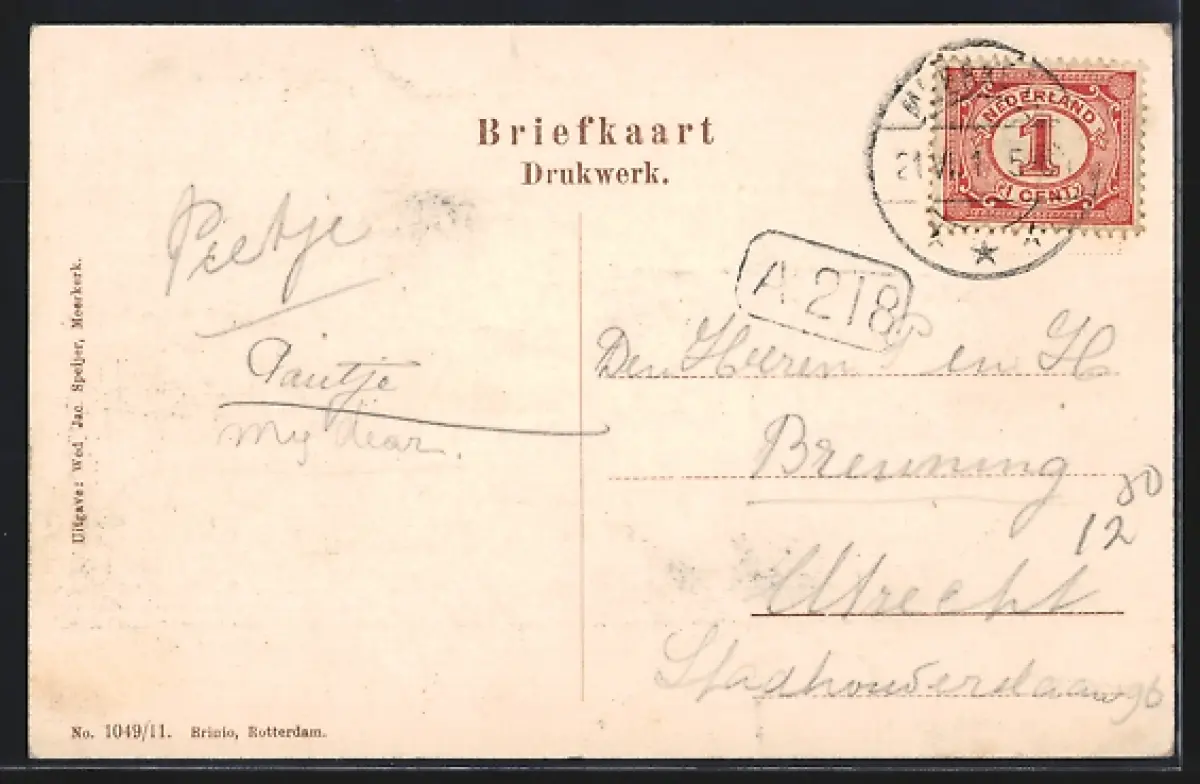 Briefkaart
Drukwerk.
NEDERLAND
1
1 CENT
21 VI 1 5
A 218
Peetje
Pautje
my dear.
Den Heeren P en H
Breuning
Utrecht
Stadhouderslaan 96
30
12
Uitgave: Wed. Jac. Speijer, Meerkerk.
No. 1049/11. Brinio, Rotterdam.